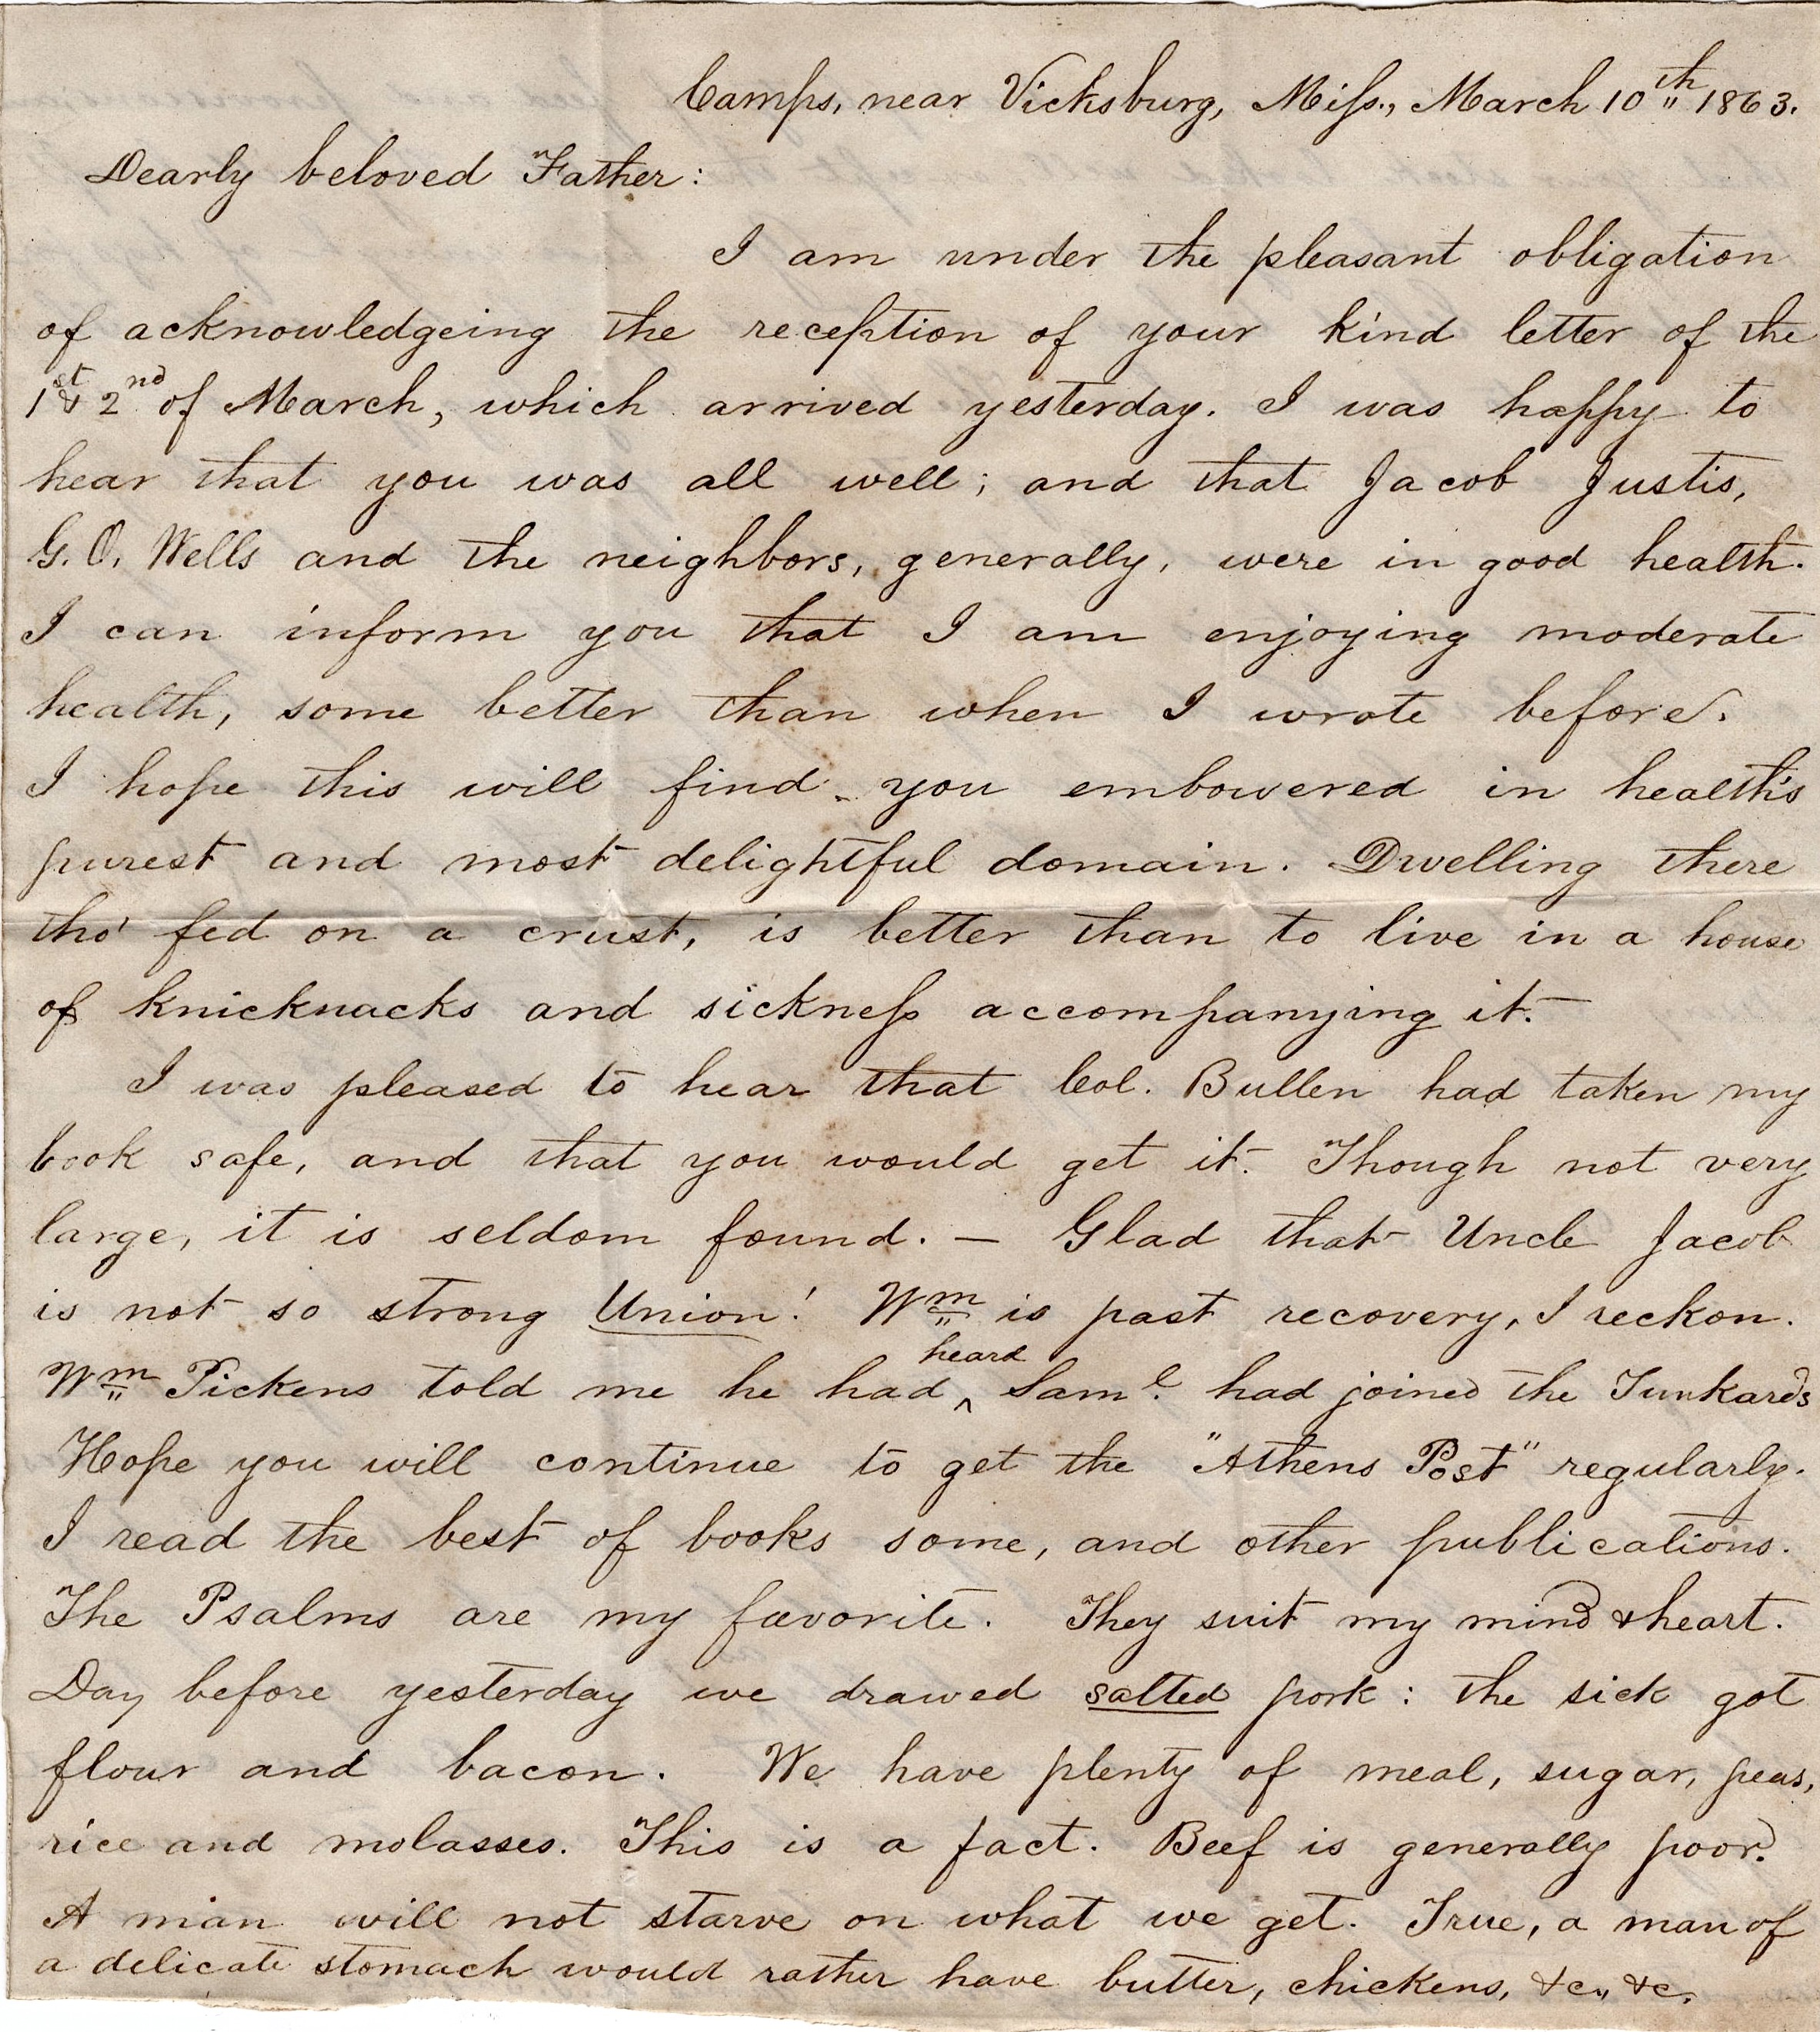 Camps, near Vicksburg, Miss., March 10th 1863.
Dearly beloved Father:
I am under the pleasant obligation
of acknowledgeing the reception of your kind letter of the
1st & 2nd of March, which arrived yesterday. I was happy to
hear that you was all well; and that Jacob Justis,
G. O. Wells and the neighbors, generally, were in good health.
I can inform you that I am enjoying moderate
health, some better than when I wrote before.
I hope this will find you embowered in health's
purest and most delightful domain. Dwelling there
tho' fed on a crust, is better than to live in a house
of knicknacks and sickness accompanying it.
I was pleased to hear that Col. Bullen had taken my
book safe, and that you would get it. Though not very
large, it is seldom found. — Glad that Uncle Jacob
is not so strong Union! Wm is past recovery, I reckon.
Wm Pickens told me he had heard Saml. had joined the Tunkards
Hope you will continue to get the "Athens Post" regularly.
I read the best of books some, and other publications.
The Psalms are my favorite. They suit my mind & heart.
Day before yesterday we drawed salted pork: the sick got
flour and bacon. We have plenty of meal, sugar, peas,
rice and molasses. This is a fact. Beef is generally poor.
A man will not starve on what we get. True, a man of
a delicate stomach would rather have butter, chickens, &c., &c.